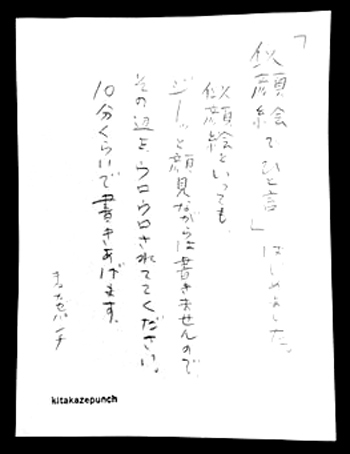 「似顔絵でひと言」はじめました。
似顔絵といっても、
ジーッと顔見ながらは書きませんので、
その辺を、ウロウロされててください。
10分くらいで書きあげます。
きたかぜパンチ
kitakazepunch